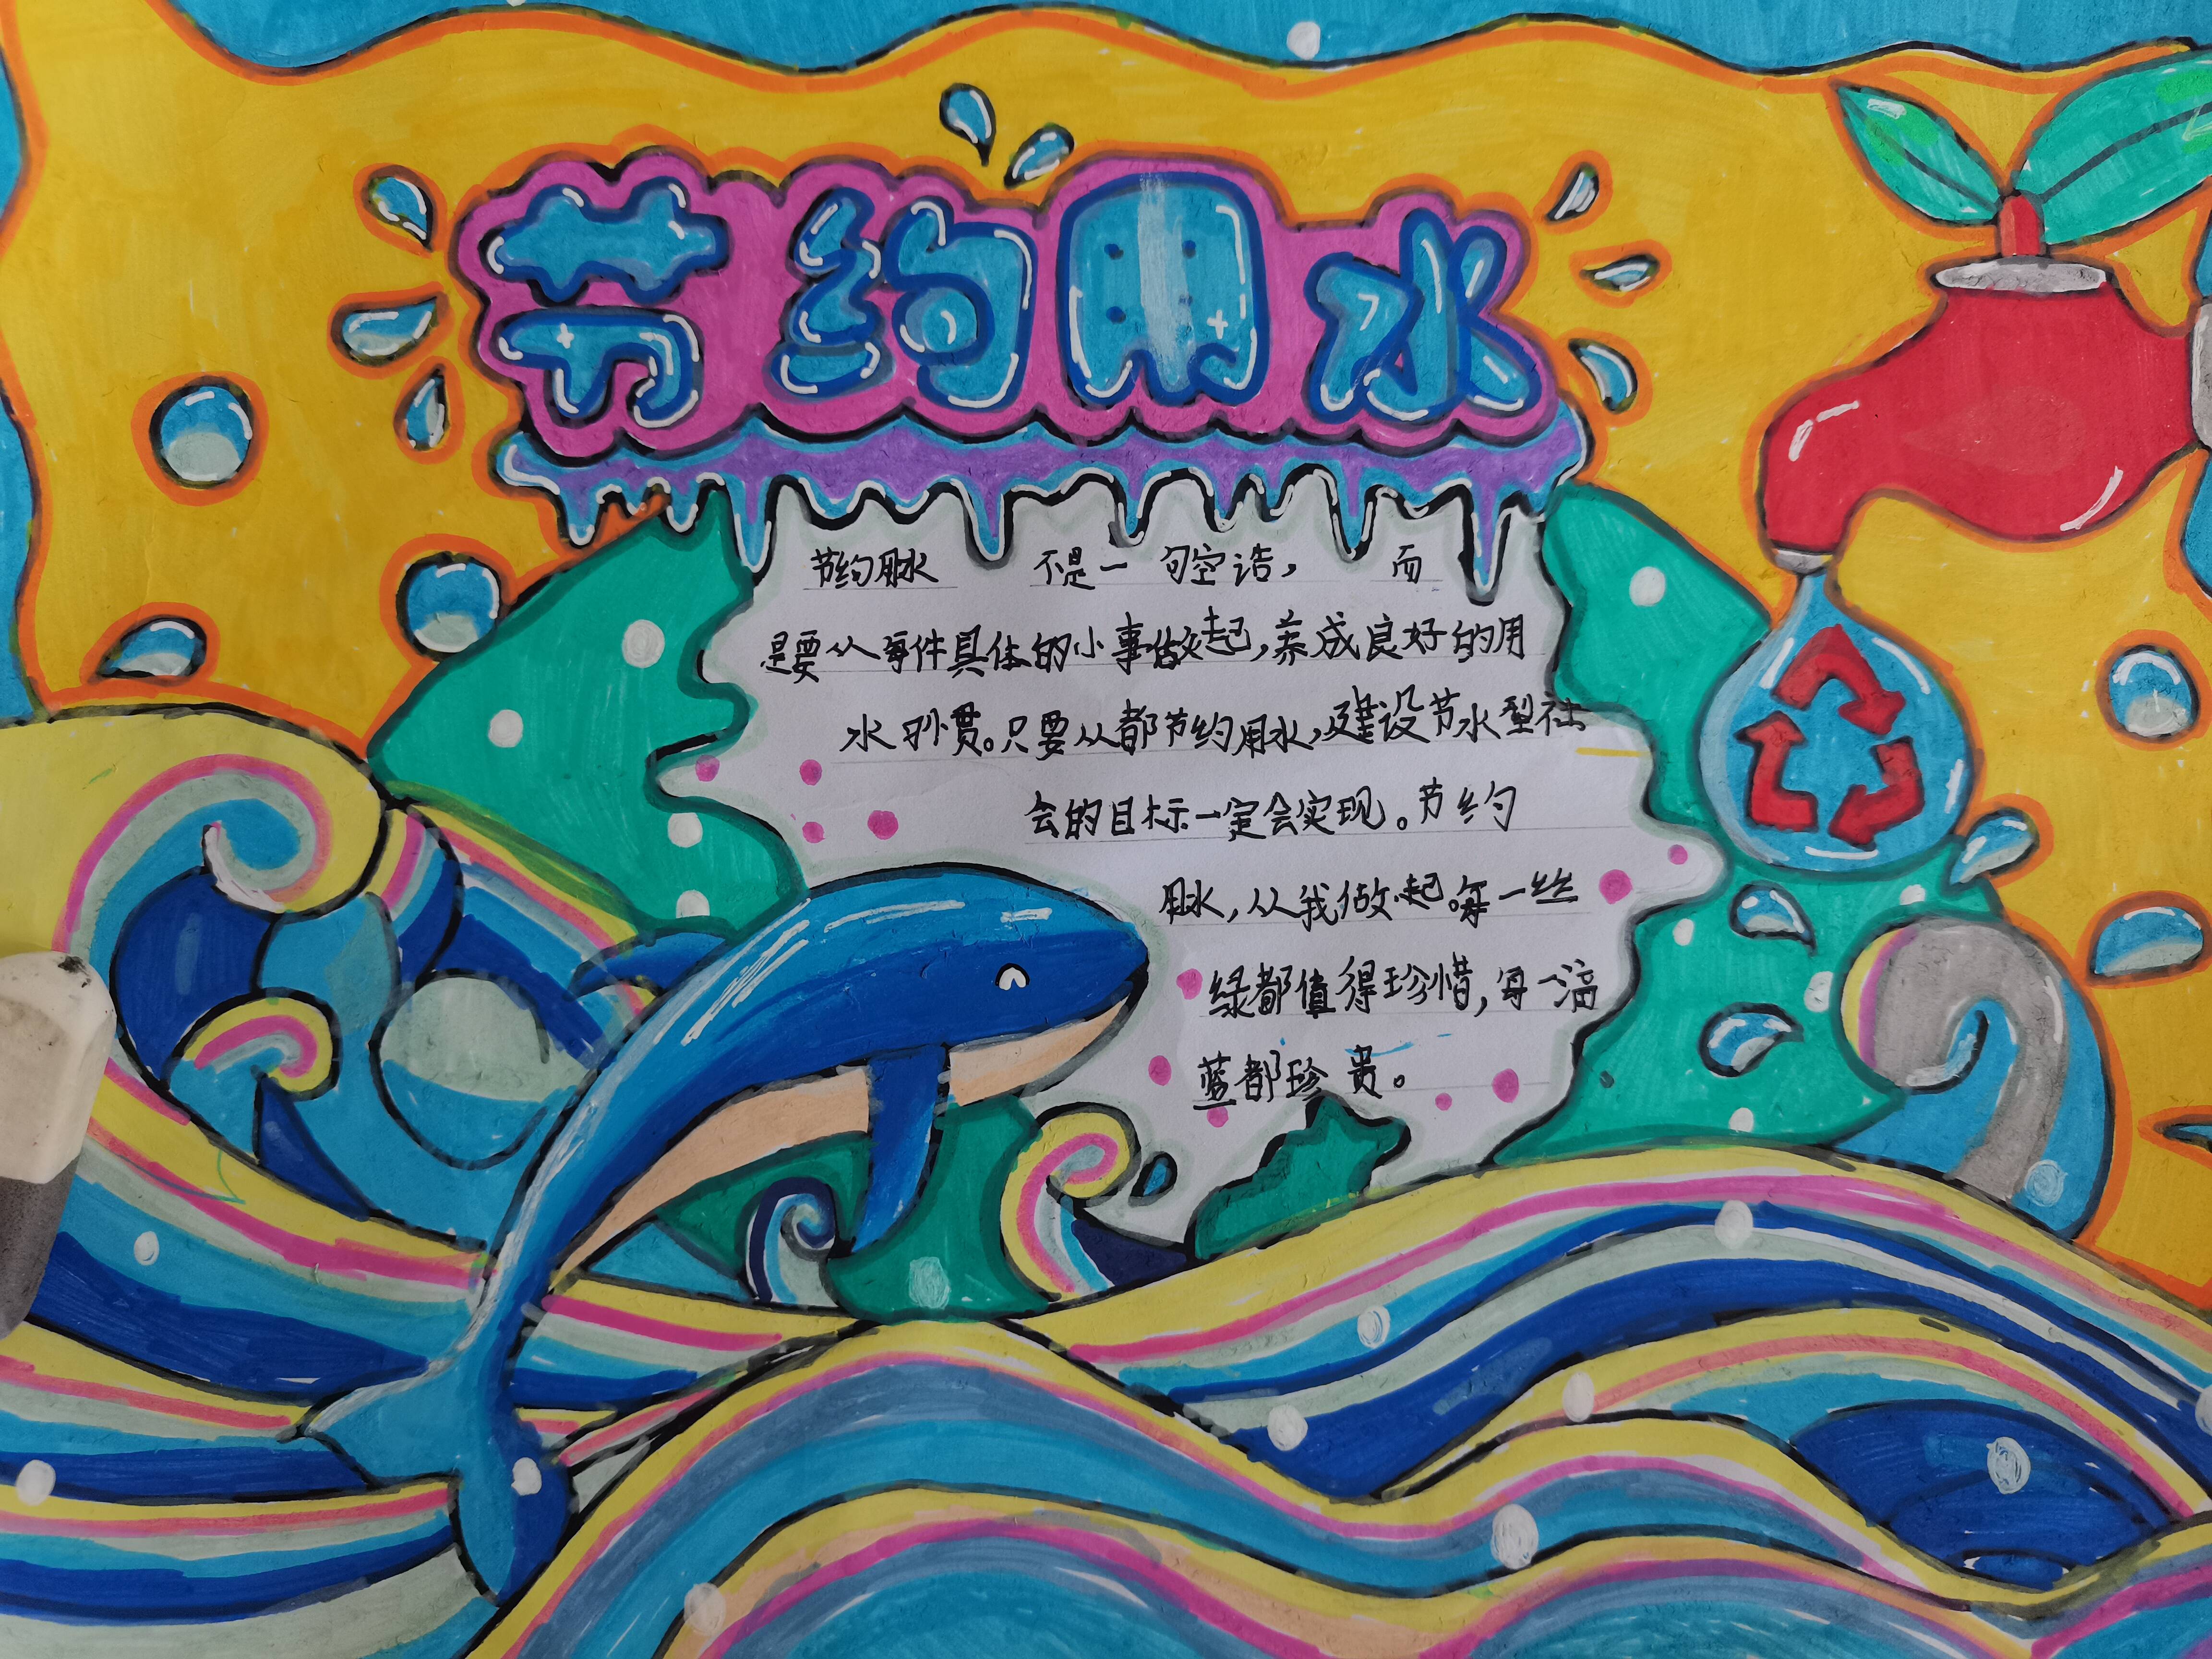 节约用水
节约用水 不是一句空话， 而
是要从每件具体的小事做起，养成良好的用
水习惯。只要从都节约用水，建设节水型社
会的目标一定会实现。节约
用水，从我做起。每一丝
绿都值得珍惜，每一滴
蓝都珍贵。